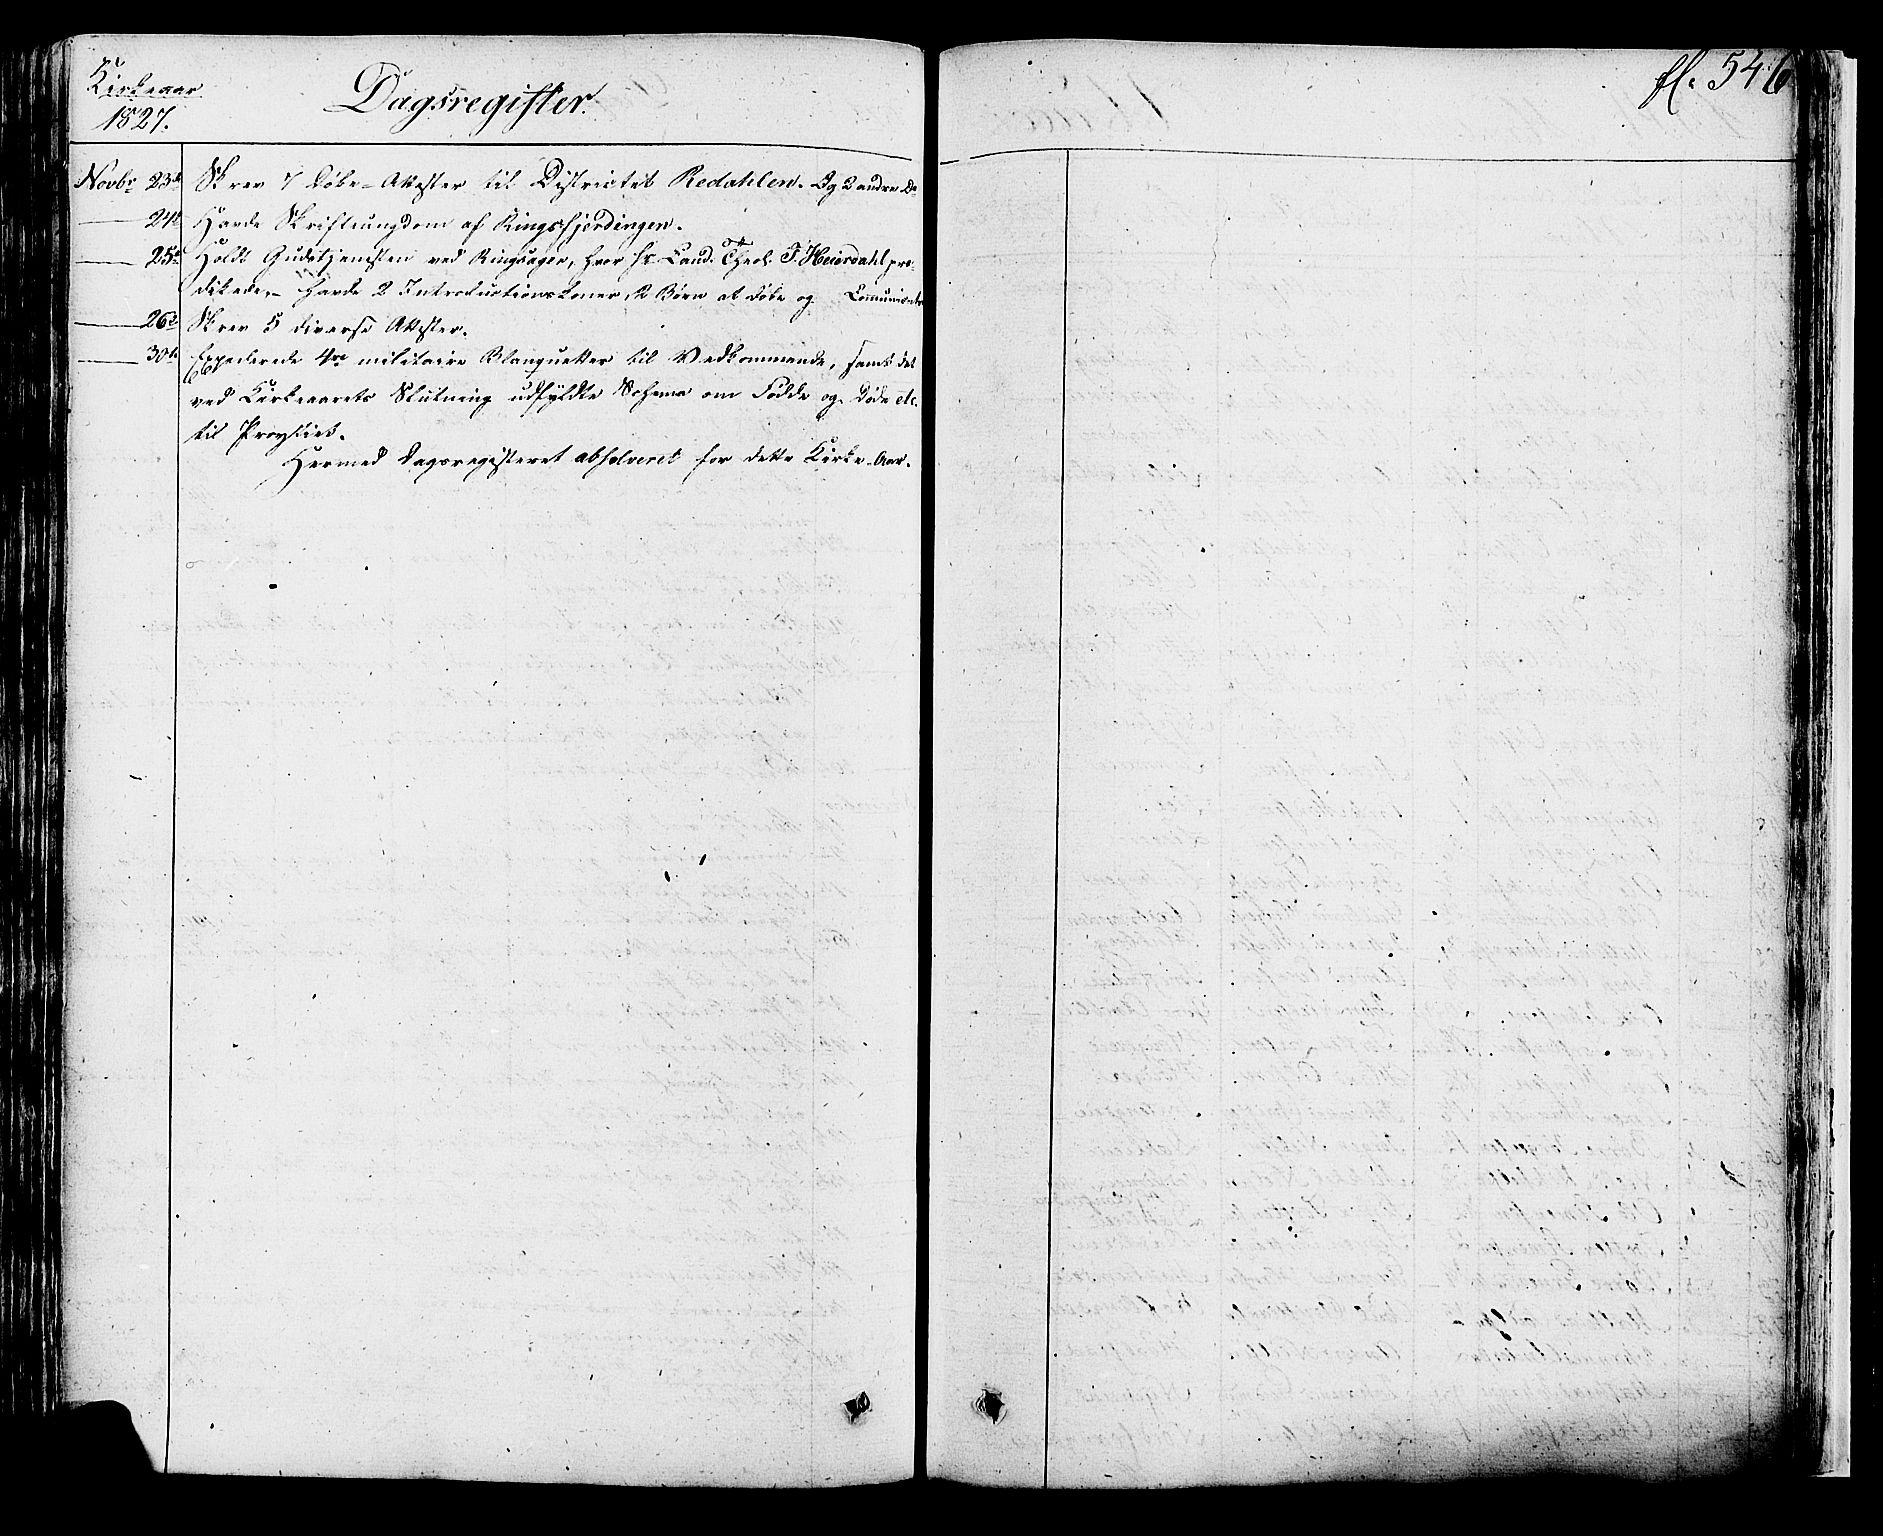 Kirkeaar
1827.
Dagsregister.
fl. 546
Novbr 23de Skrev 7 Døbe-Attester til Districtet Redahlen. Og 2 andre Do
24de Havde Skrifteungdom af Ringsfjerdingen.
25de Holdt Gudstjenesten ved Ringsager, hvor Hr. Cand. Theol. F. Heierdahl præ-
dikede, - havde 2 Introductionskoner, 2 Børn at døbe og Communicanter
26de Skrev 5 diverse Attester.
30te Expederede 4re militaire Blanquetter til Vedkommende, samt det
ved Kirkeaarets Slutning udfyldte Schema om Fødde og Døde etc.
til Provstiet.
Hermed Dagsregisteret absolveret for dette Kirke-Aar.